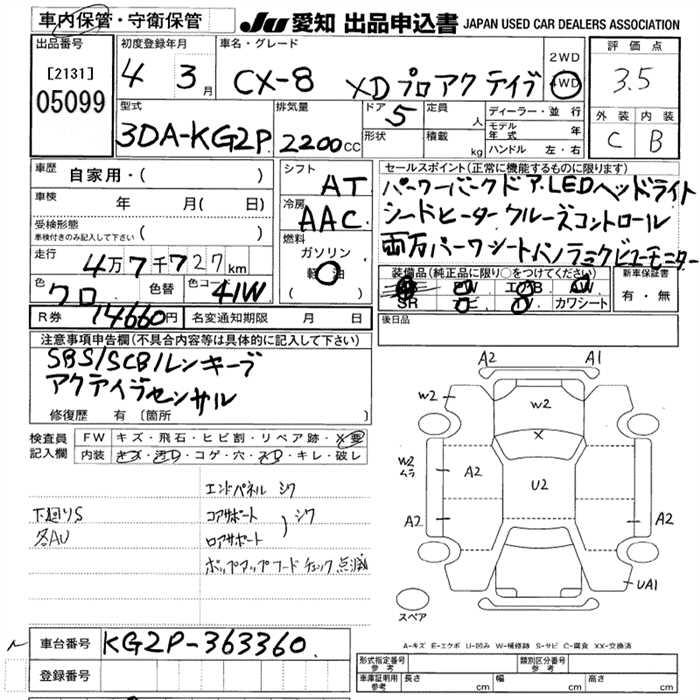 車内保管・守衛保管
JU 愛知 出品申込書 JAPAN USED CAR DEALERS ASSOCIATION
出品番号
[2131]
05099
初度登録年月
4 3月
車名・グレード
CX-8 XD プロアクティブ
2WD
4WD
評価点
3.5
外装 内装
C B
型式
3DA-KG2P
排気量
2200CC
ドア
5
形状
定員
人
積載
kg
ディーラー・並行
モデル年式 年
ハンドル 左・右
車歴
自家用・( )
車検
年 月( 日)
受検形態
車検付きのみ記入して下さい
( )
走行
4万7千727km
色
クロ
色替
色コード
41W
シフト
AT
冷房
AAC
燃料
ガソリン
軽油
( )
セールスポイント(正常に機能するものに限ります)
パーワーバークドア.LEDヘッドライト
シードヒーター クルーズコントロール
両万パーワシートパノラミクビューモニター
装備品(純正品に限り○をつけてください)
PW エアB AW
SR ナビ TV カワシート
新車保証書
有・無
R券
14660円
名変通知期限 月 日
後日品
注意事項申告欄(不具合内容等は具体的に記入して下さい)
SBS/SCB/レンキープ
アクテイブセンサル
修復歴 有 [箇所 ]
検査員
記入欄
FW キズ・飛石・ヒビ割・リペア跡・X要
内装 キズ・汚レ・コゲ・穴・スレ・キレ・破レ
エンドパネル シワ
下廻りS コアサポート
各AU ロアサポート
シワ
ポップアップフードチェック点滅
A2 A1
W2 W2
X
W2
ムラ
A2 U2
A2 A2
UA1
スペア
車台番号
KG2P-363360
登録番号
A-キズ E-エクボ U-凹み W-補修跡 S-サビ C-腐食 XX-交換済
形式指定番号
参考
類別区分番号
参考
車庫証明用
参考
長さ cm 幅 cm 高さ cm